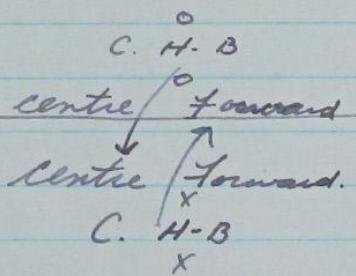 O
C. H-B
O
centre Forward
centre Forward.
X
C. H-B
X